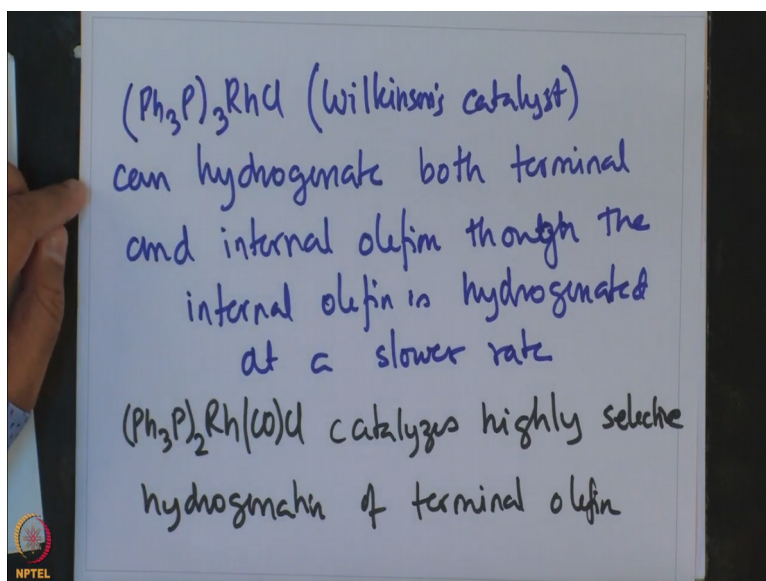 (Ph₃P)₃RhCl (Wilkinson's catalyst)
can hydrogenate both terminal
and internal olefin though the
internal olefin is hydrogenated
at a slower rate
(Ph₃P)₂Rh(CO)Cl catalyzes highly selective
hydrogenation of terminal olefin
NPTEL